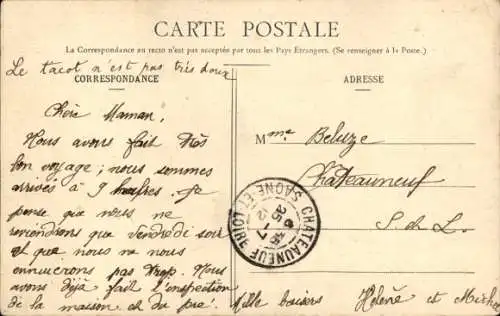 CARTE POSTALE
La Correspondance au recto n'est pas acceptée par tous les Pays Étrangers. (Se renseigner à la Poste.)
Le tacot n'est pas très doux
CORRESPONDANCE
Chère Maman,
Nous avons fait très
bon voyage ; nous sommes
arrivés à 9 heures. Je
pense que nous ne
reviendrons que vendredi soir
et que nous ne nous
ennuierons pas trop. Nous
avons déjà fait l'inspection
de la maison et du pré. Mille baisers Hélène et
ADRESSE
Mme Beluze
Châteauneuf
S. et L.
CHATEAUNEUF
SAONE-ET-LOIRE
25-7